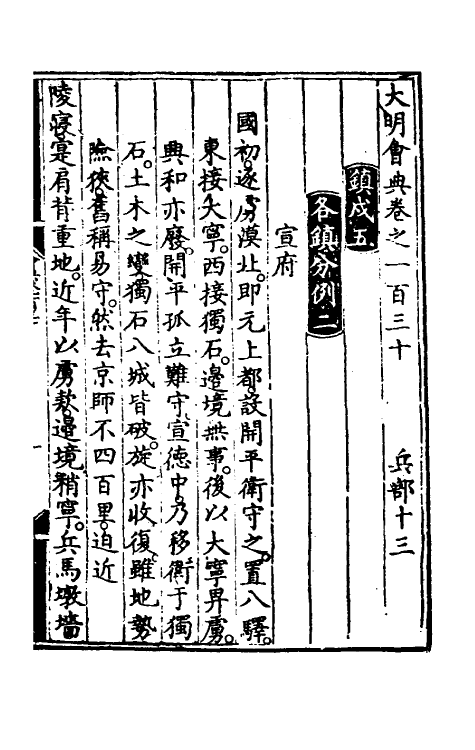 大明會典卷之一百三十　兵部十三
鎮戍五
各鎮分例二
宣府
國初。逐虜漠北。即元上都。設開平衛守之。置八驛。
東接大寧。西接獨石。邊境無事。後以大寧畀虜。
興和亦廢。開平孤立難守。宣德中。乃移衛于獨
石。土木之變。獨石八城皆破。旋亦收復。雖地勢
險狹。舊稱易守。然去京師不四百里。迫近
陵寢。寔肩背重地。近年以虜款。邊境稍寧。兵馬墩墻